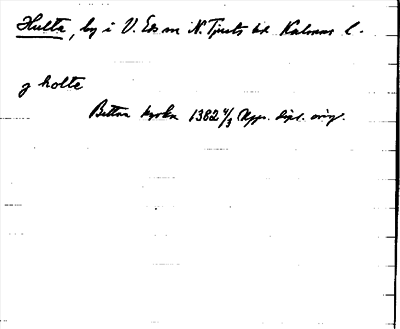 Hulta, by i V. Ed sn N. Tjusts hd Kalmar l.
g holte
Bettna kyrka 1382 4/3 Upps. dipl. orig.